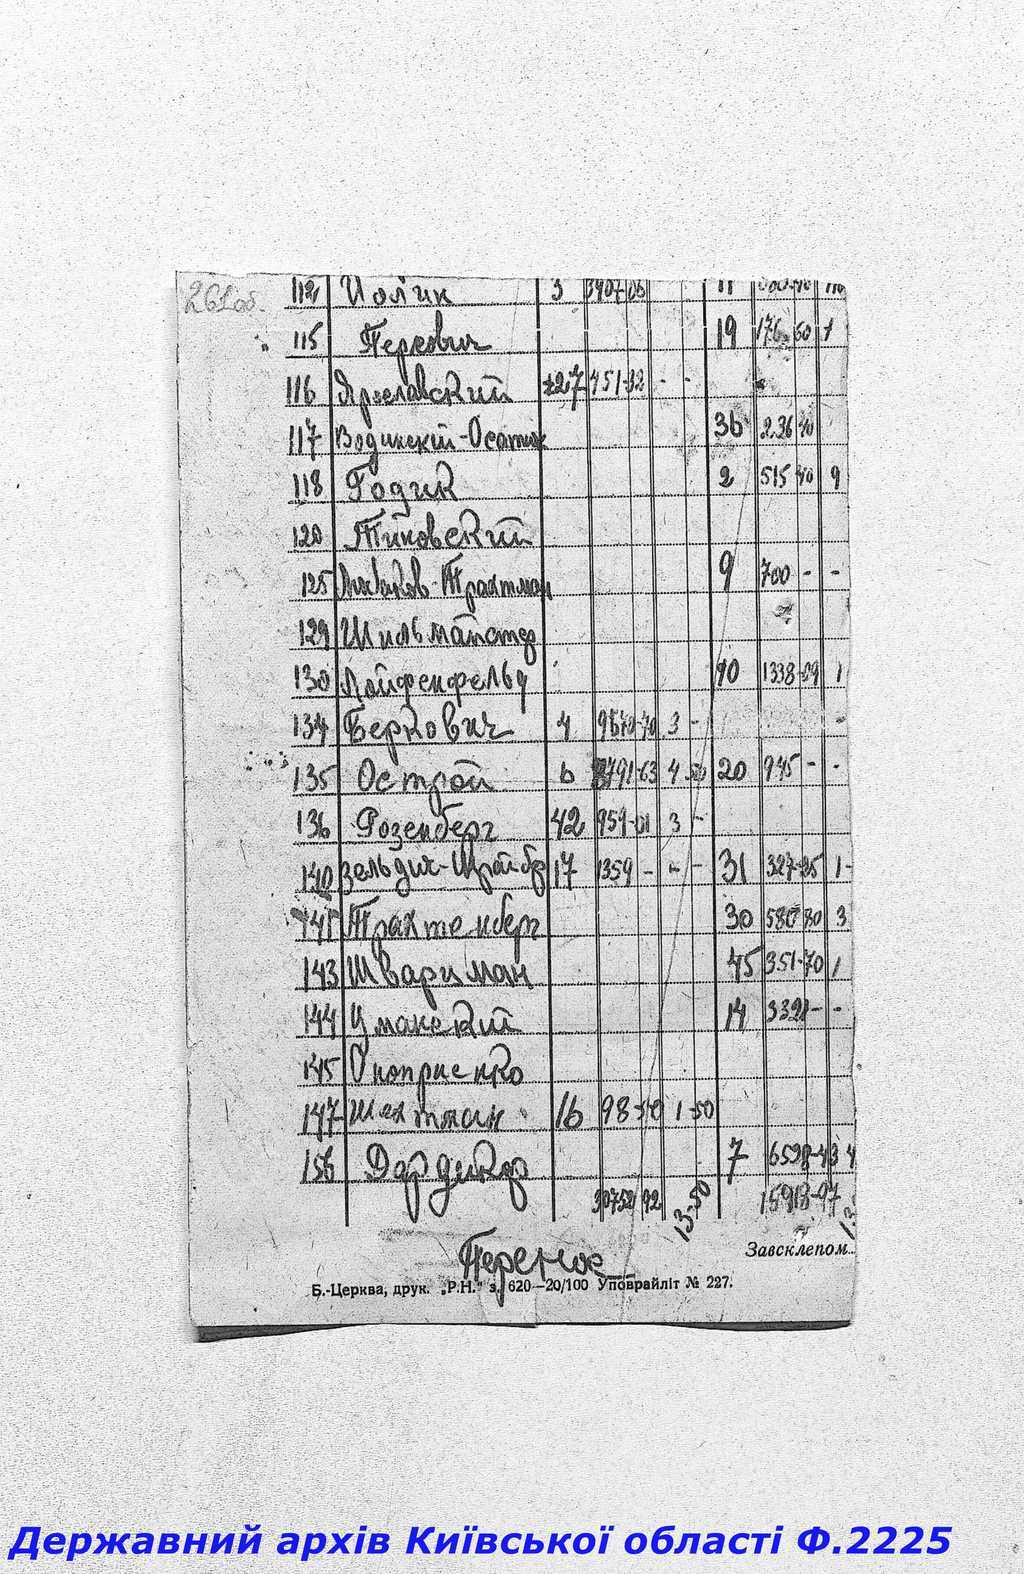 261 об.
112 3 3907-06 11
115 Перкович 19 176 50 1
116 Ярославский 451-32 - -
117 Водинский-Осатюк 36 236 40
118 Годик 2 515 40 9
120 Тиновский
125 Трахтман 9 700 - -
129
130 Лойфенфельд 10 1338-09 1
134 Беркович 4 3 - -
135 Острой 6 3791-63 4-50 20 945 - -
136 Розенберг 42 959-01 3 -
140 Зельдич- 17 1359 - - - 31 327-25 1-
Трахтенберг 30 580 80 3
143 Шварцман 45 351-70 1
144 Уманский 14 3321 - -
145 Оноприенко
147 Шехтман 16 98-40 1-50
156 Дардикар 7 6598-43 4
30752 92 13-50 15918-97
Перенос
Завсклепом..
Б.-Церква, друк. „Р.Н." з. 620—20/100 Уповрайліт № 227.
Державний архів Київської області Ф.2225